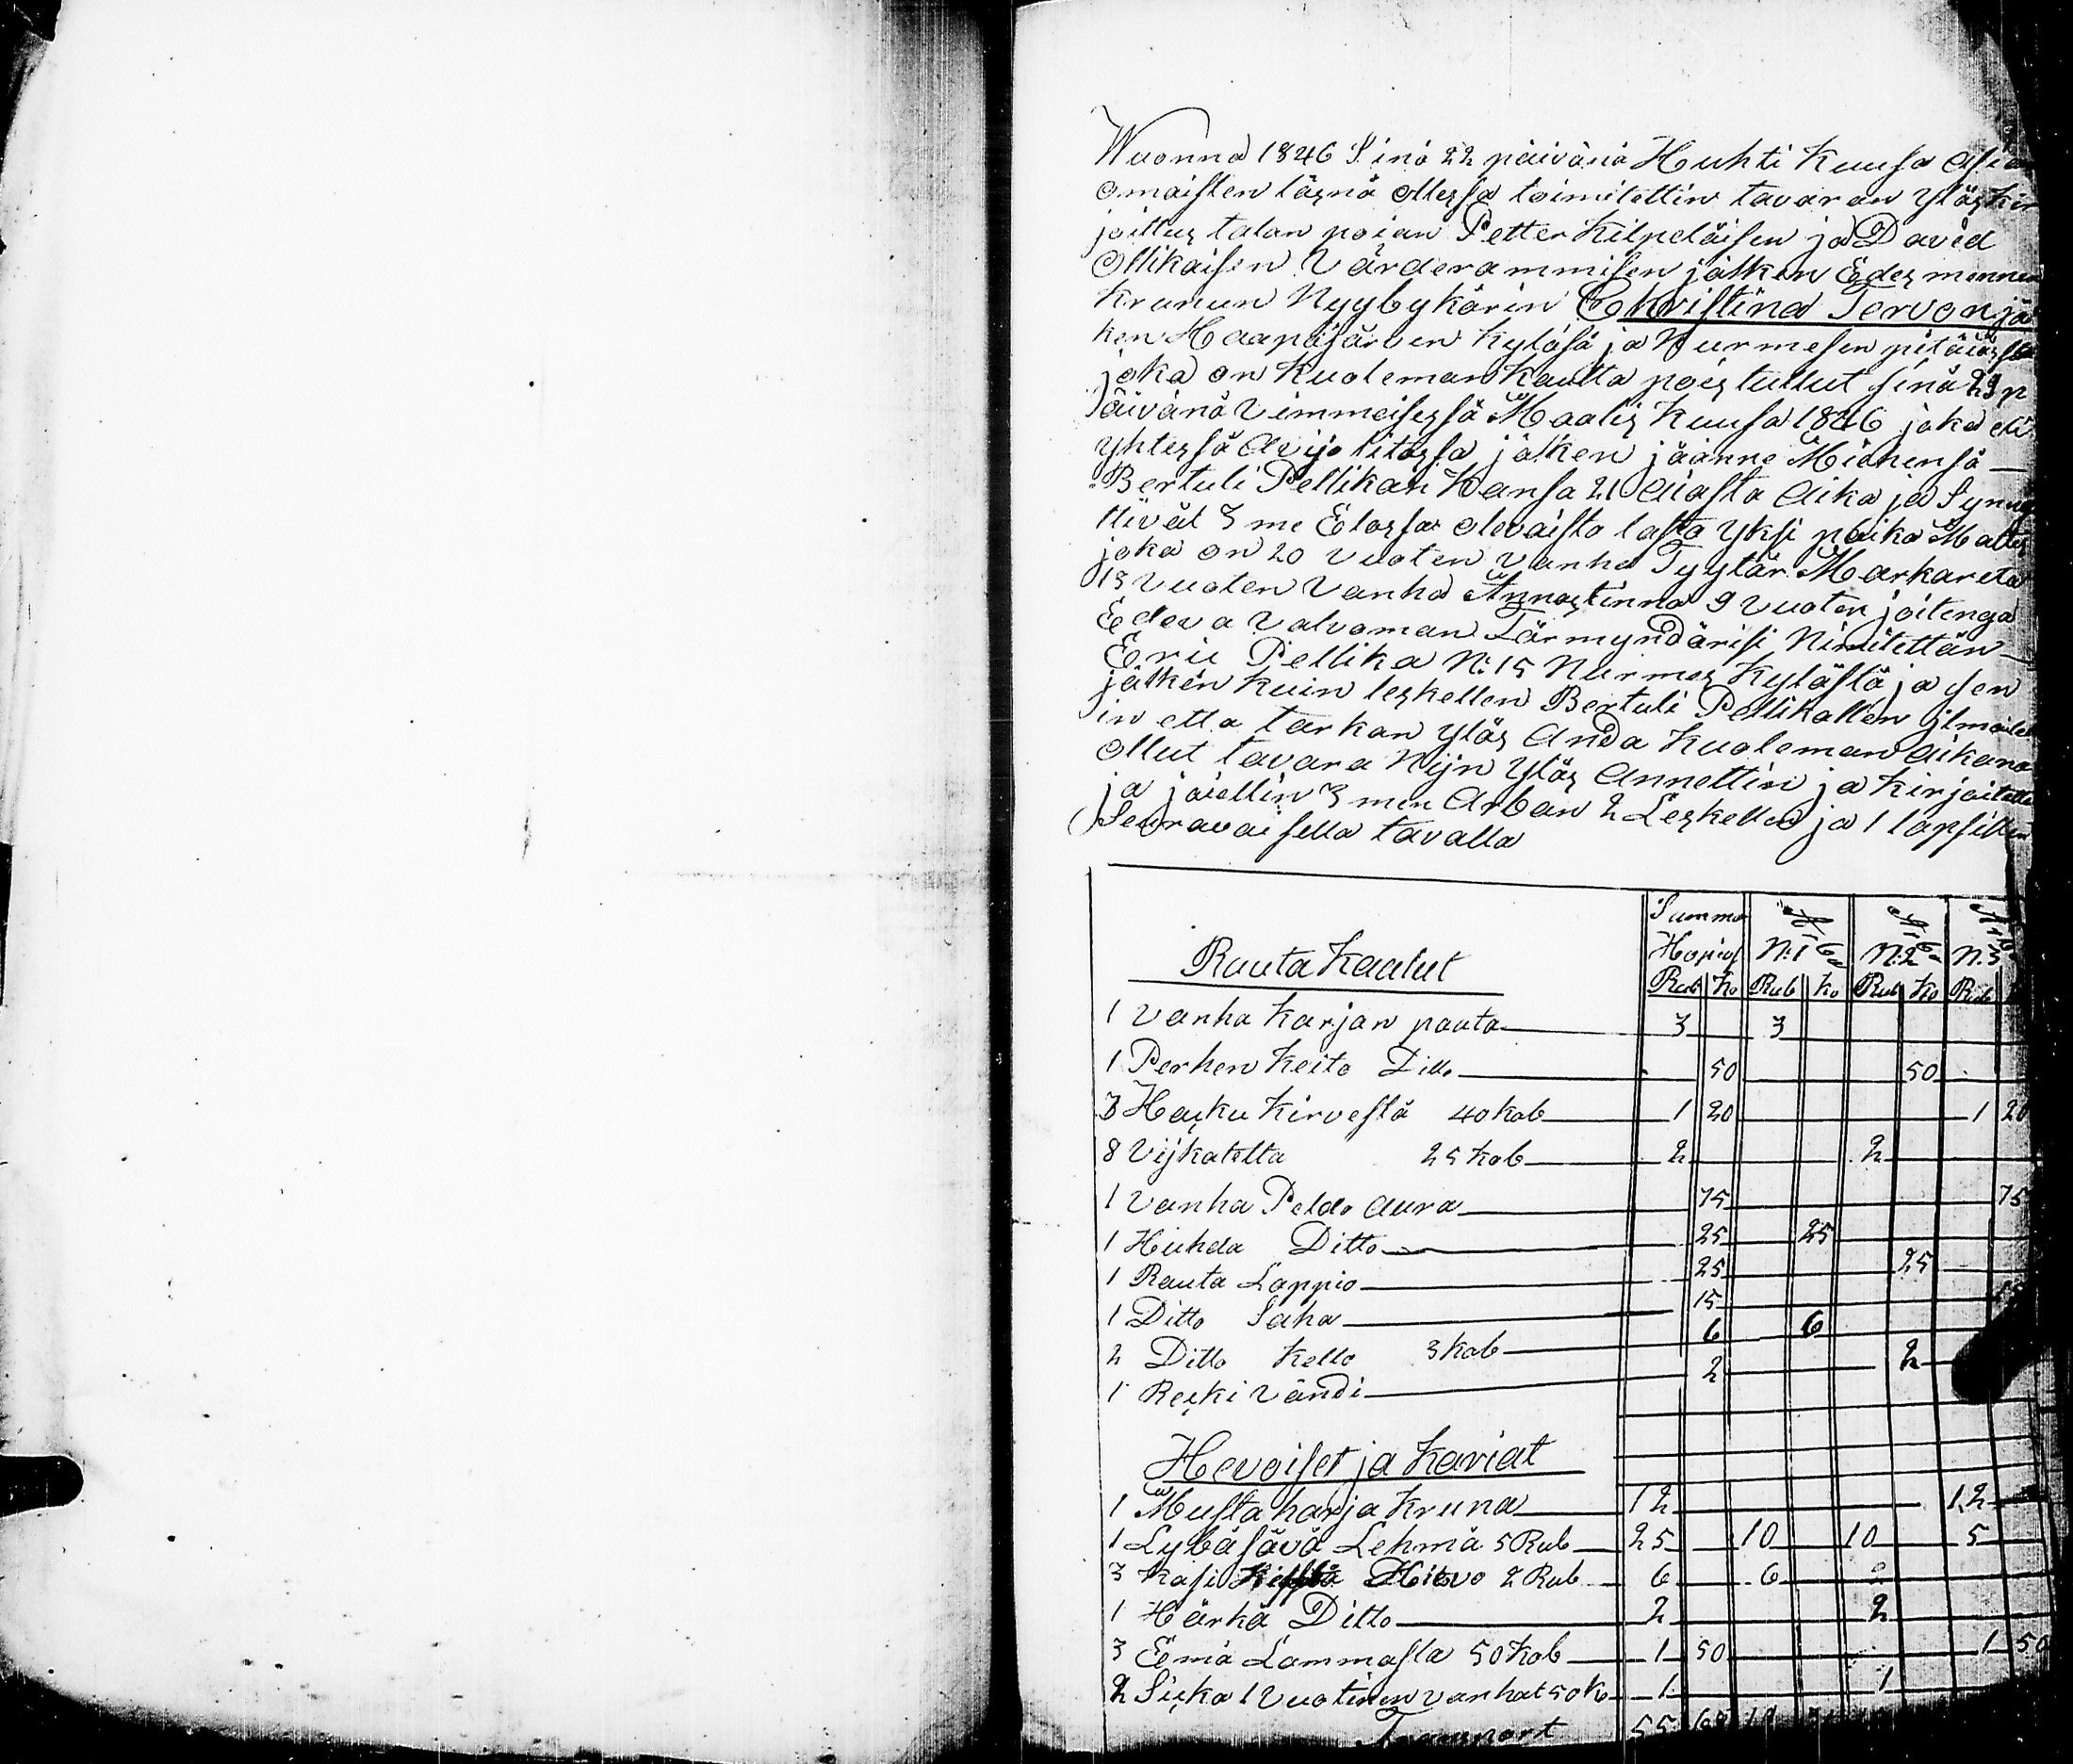 Wuonna 1846 Sinä 22 päivänä Huhti Kuusa Asian
omaisten läsnä ollessa toimitettin tavaran Yläskir
joittus talan poian Petter Kilpeläisen ja David
Ollikaisen Värderammisen jälken Edes mennen
Krunun Nyybykärin Christina Tervon jä
ken Haapajärven Kyläsä ja Nurmesen pitäiässä
joka on Kuoleman Kautta pois tullut sinä 29 p
äivänä Vimmeisessä Maalis Kuusa 1846 joka eli
Yhtessä Avijo litossa jälken jäänne Miehensä
Bertuli Pellikan Kansa 21 Aiasta Aika ja Synnu
ttivät 3 me Elossa olevaista lasta Yksi poika Mattes
joka on 20 Vuoten Vanha Tyytär Markareta
13 Vuoten Vanha Annastinna 9 Vuoten joitenga
Edeva Valvoman Färmyndärisi Nimitettän
Eric Pellika N:15 Nurmes Kylästä ja sen
jälken Kuin leskellen Bertuli Pellikallen ilmoitet
in etta tarkan yläs Anda Kuoleman Aikana
ollut tavara Nijn Yläs Annettin ja Kirjoitetti
ja jaiettin 3 men Arban 2 Leskellen ja 1 lapsillen
Seuravaisella tavalla
Rauta Kaalut
Summa Hopias N:1 N:2 N:3
Rub Ko Rub Ko Rub Ko Rub
1 Vanha Karjan paata 3 3
1 Perhen Keito Ditto 50 50
3 Hasku Kirvestä 40 Kob 1 20 1 20
8 Vijkatetta 25 Kob 2 2
1 Vanha Peldo Aura 75 75
1 Huhda Ditto 25 25
1 Rauta Lappio 25 25
1 Ditto Saha 15 15
2 Ditto Kello 3 Kob 6 6
1 Reski Vändi 2 2
Hevoiset ja Kariat
1 Musta harja Kruna 12 12
1 Lybäsävä Lehmä 5 Rub 25 10 10 5
3 Kasi Hievo 2 Rub 6 6
1 Härkä Ditto 2 2
3 Emä Lammasta 50 Kob 1 50 1 50
2 Sicka 1 Vuotinen vanhat 50 Ko 1 1
Transport 55 68 19